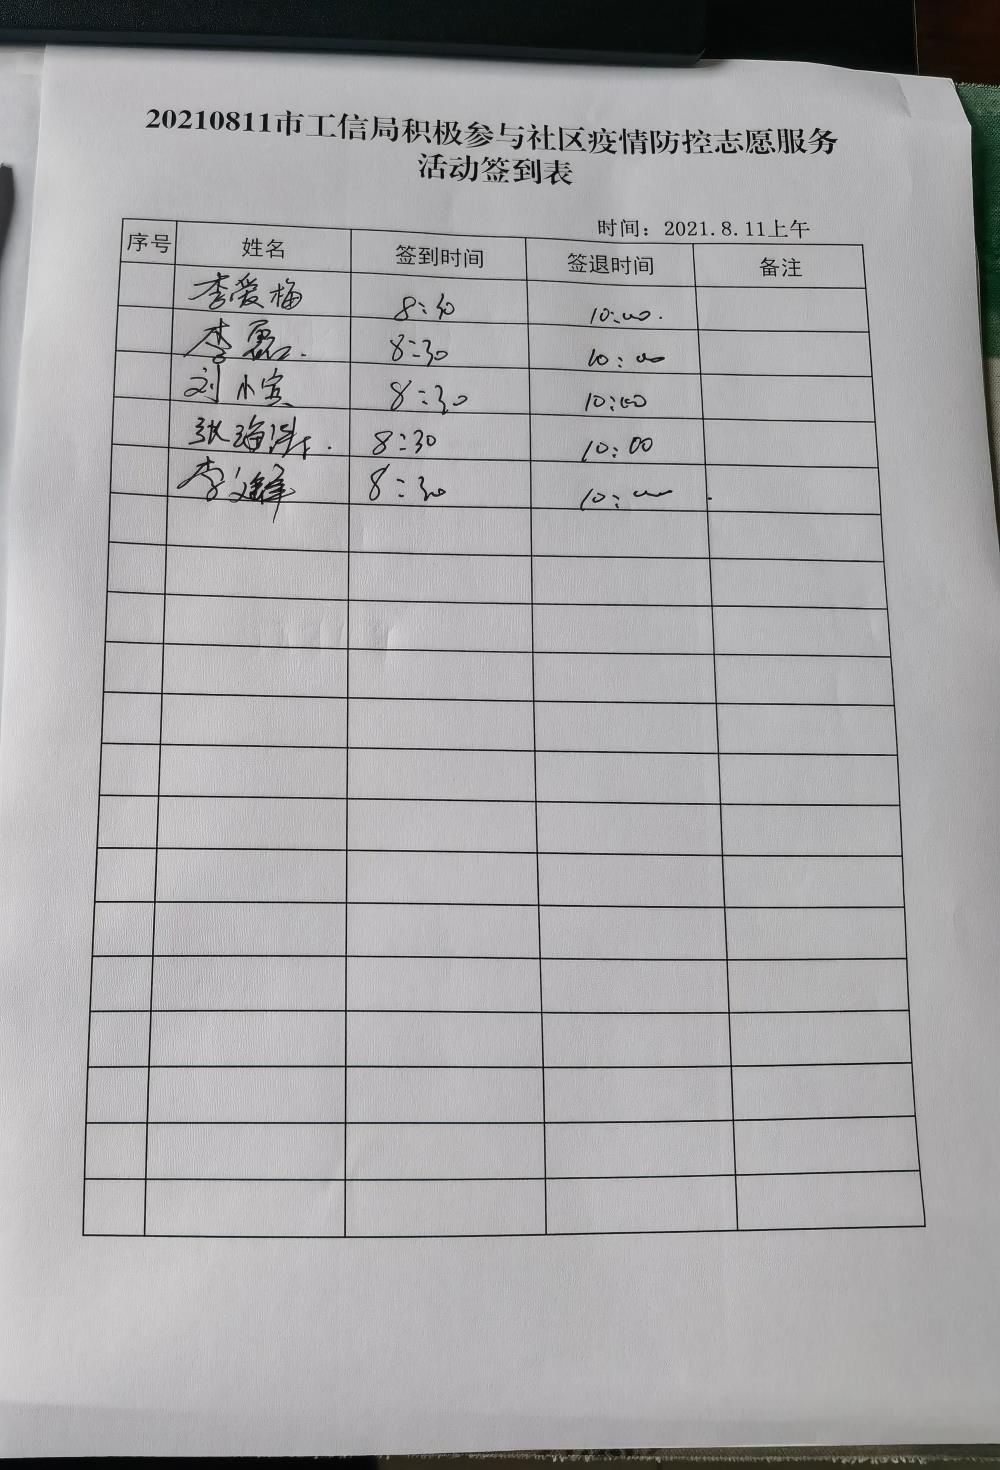 20210811市工信局积极参与社区疫情防控志愿服务
活动签到表
时间：2021.8.11上午
序号 姓名 签到时间 签退时间 备注
李爱梅 8:30 10:00.
李磊. 8:30 10:00
刘小宾 8:30 10:00
张海 8:30 10:00
李文锋 8:30 10:00